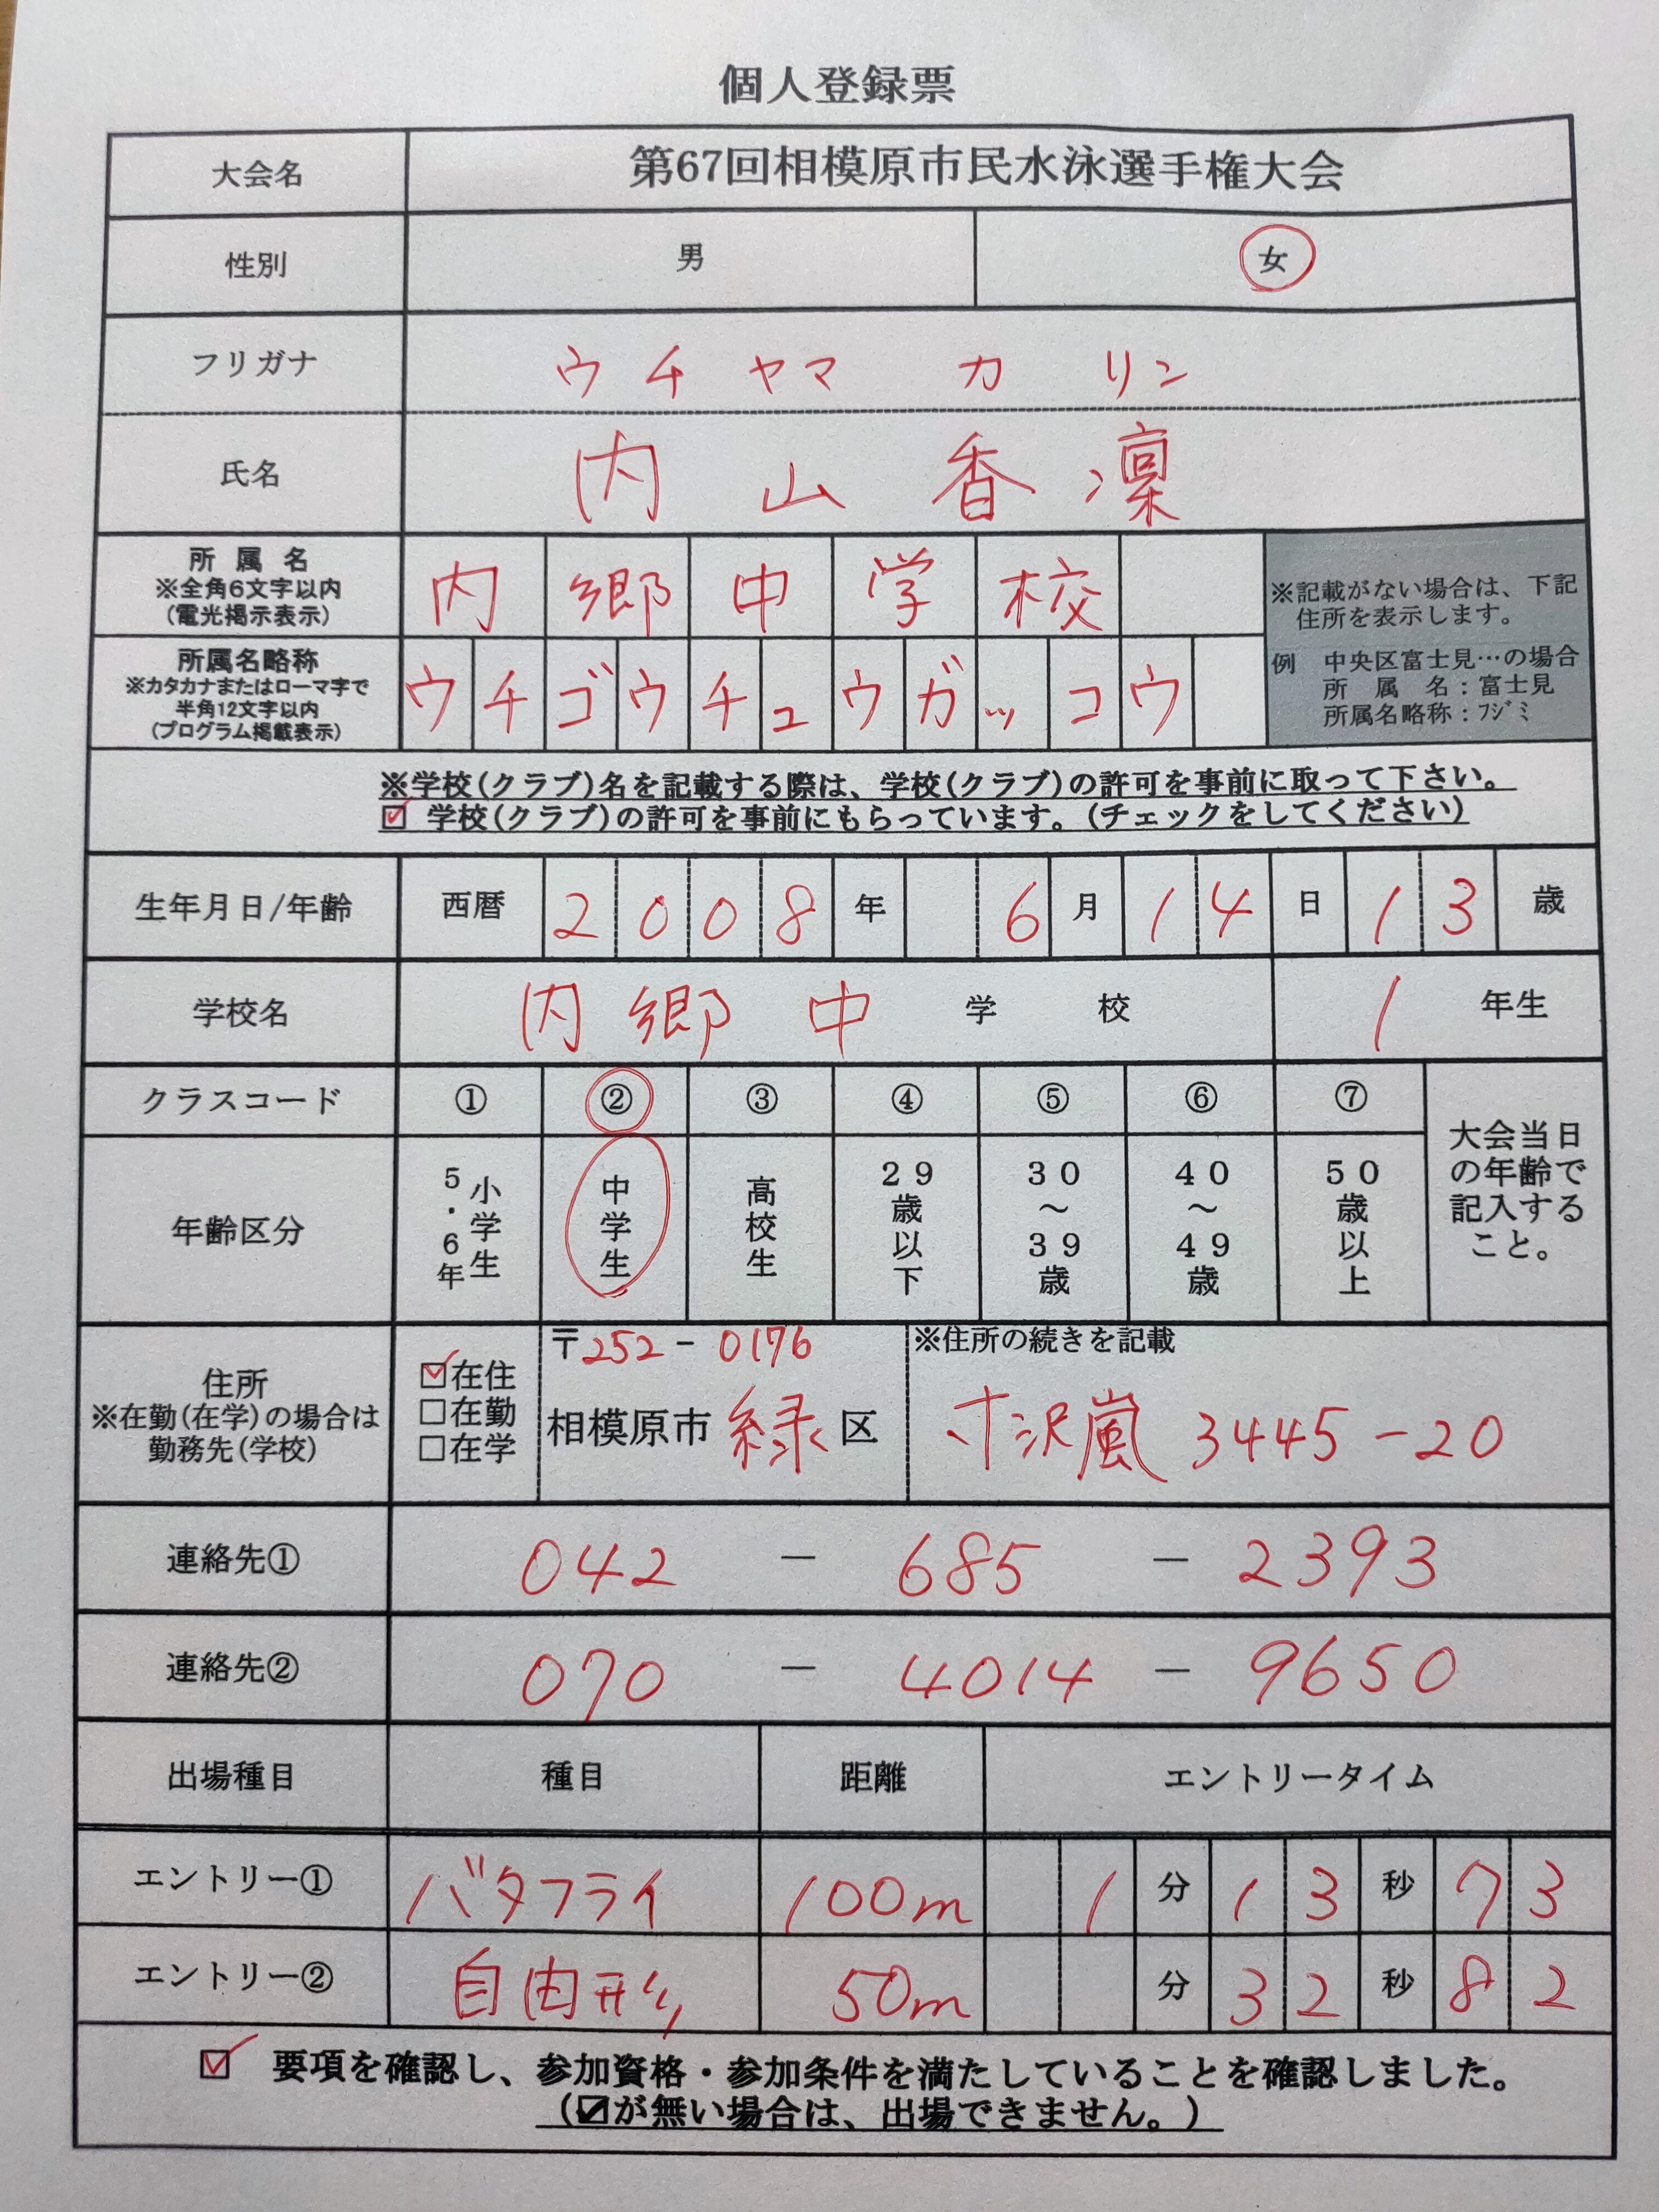 個人登録票
大会名 第67回相模原市民水泳選手権大会
性別 男 女
フリガナ ウチヤマ カリン
氏名 内山香凜
所属名 ※全角6文字以内 (電光掲示表示) 内郷中学校
※記載がない場合は、下記住所を表示します。
所属名略称 ※カタカナまたはローマ字で半角12文字以内 (プログラム掲載表示) ウチゴウチュウガッコウ
例 中央区富士見…の場合
所属名：富士見
所属名略称：フジミ
※学校(クラブ)名を記載する際は、学校(クラブ)の許可を事前に取って下さい。
☑ 学校(クラブ)の許可を事前にもらっています。(チェックをしてください)
生年月日/年齢 西暦 2008年 6月14日 13歳
学校名 内郷中学校 1年生
クラスコード ① ② ③ ④ ⑤ ⑥ ⑦
年齢区分 小学生5・6年 中学生 高校生 29歳以下 30～39歳 40～49歳 50歳以上
大会当日の年齢で記入すること。
住所 ※在勤(在学)の場合は勤務先(学校)
☑在住
□在勤
□在学
〒252-0176
相模原市緑区
※住所の続きを記載
寸沢嵐3445-20
連絡先① 042 － 685 － 2393
連絡先② 070 － 4014 － 9650
出場種目 種目 距離 エントリータイム
エントリー① バタフライ 100m 1分13秒73
エントリー② 自由形 50m 分32秒82
☑ 要項を確認し、参加資格・参加条件を満たしていることを確認しました。
(☑が無い場合は、出場できません。)